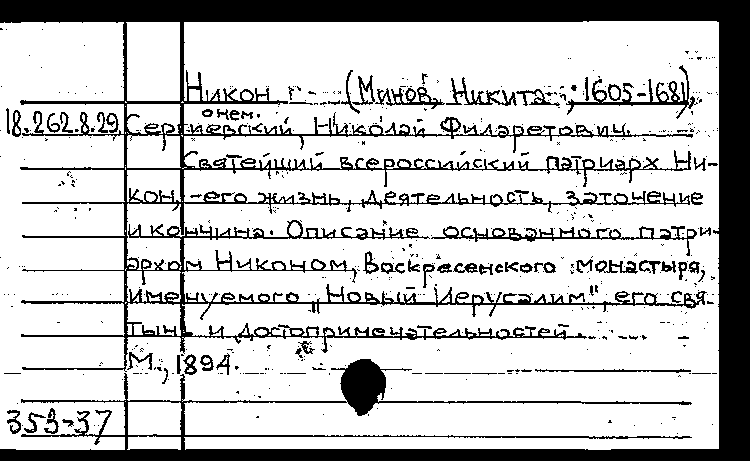 Никон (Минов, Никита; 1605-1681),
о нем.
18.262.8.29. Сергиевский, Николай Филаретович.
Святейший всероссийский патриарх Ни-
кон, - его жизнь, деятельность, заточение
и кончина. Описание основанного патри-
архом Никоном, Воскресенского монастыря,
именуемого „Новый Иерусалим", его свя-
тынь и достопримечательностей.
М., 1894.
353-37